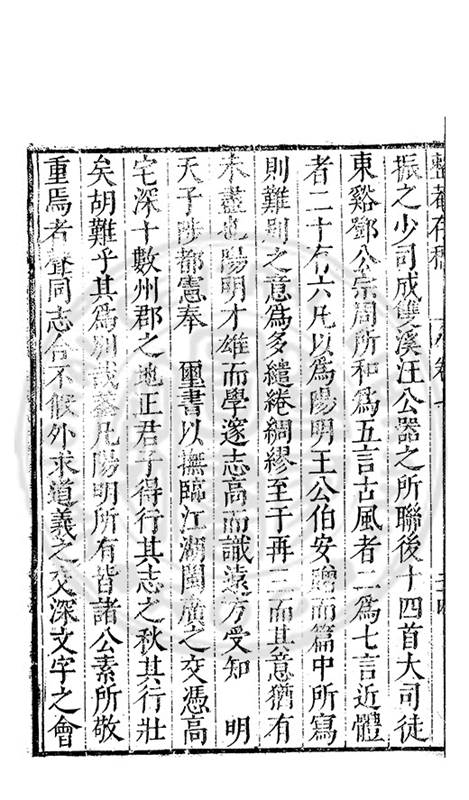 整菴存稿
振之少司成雙溪汪公器之所聯後十四首大司徒
東谿鄧公宗周所和為五言古風者一為七言近體
者二十有六凡以為陽明王公伯安贈而篇中所寫
則難別之意為多繾綣綢繆至于再三而其意猶有
未盡也陽明才雄而學邃志高而識遠方受知　明
天子陟都憲奉　璽書以撫臨江湖閩廣之交憑高
宅深十數州郡之地正君子得行其志之秋其行壯
矣胡難乎其為別哉葢凡陽明所有皆諸公素所敬
重焉者聲同志合不假外求道義之交深文字之會